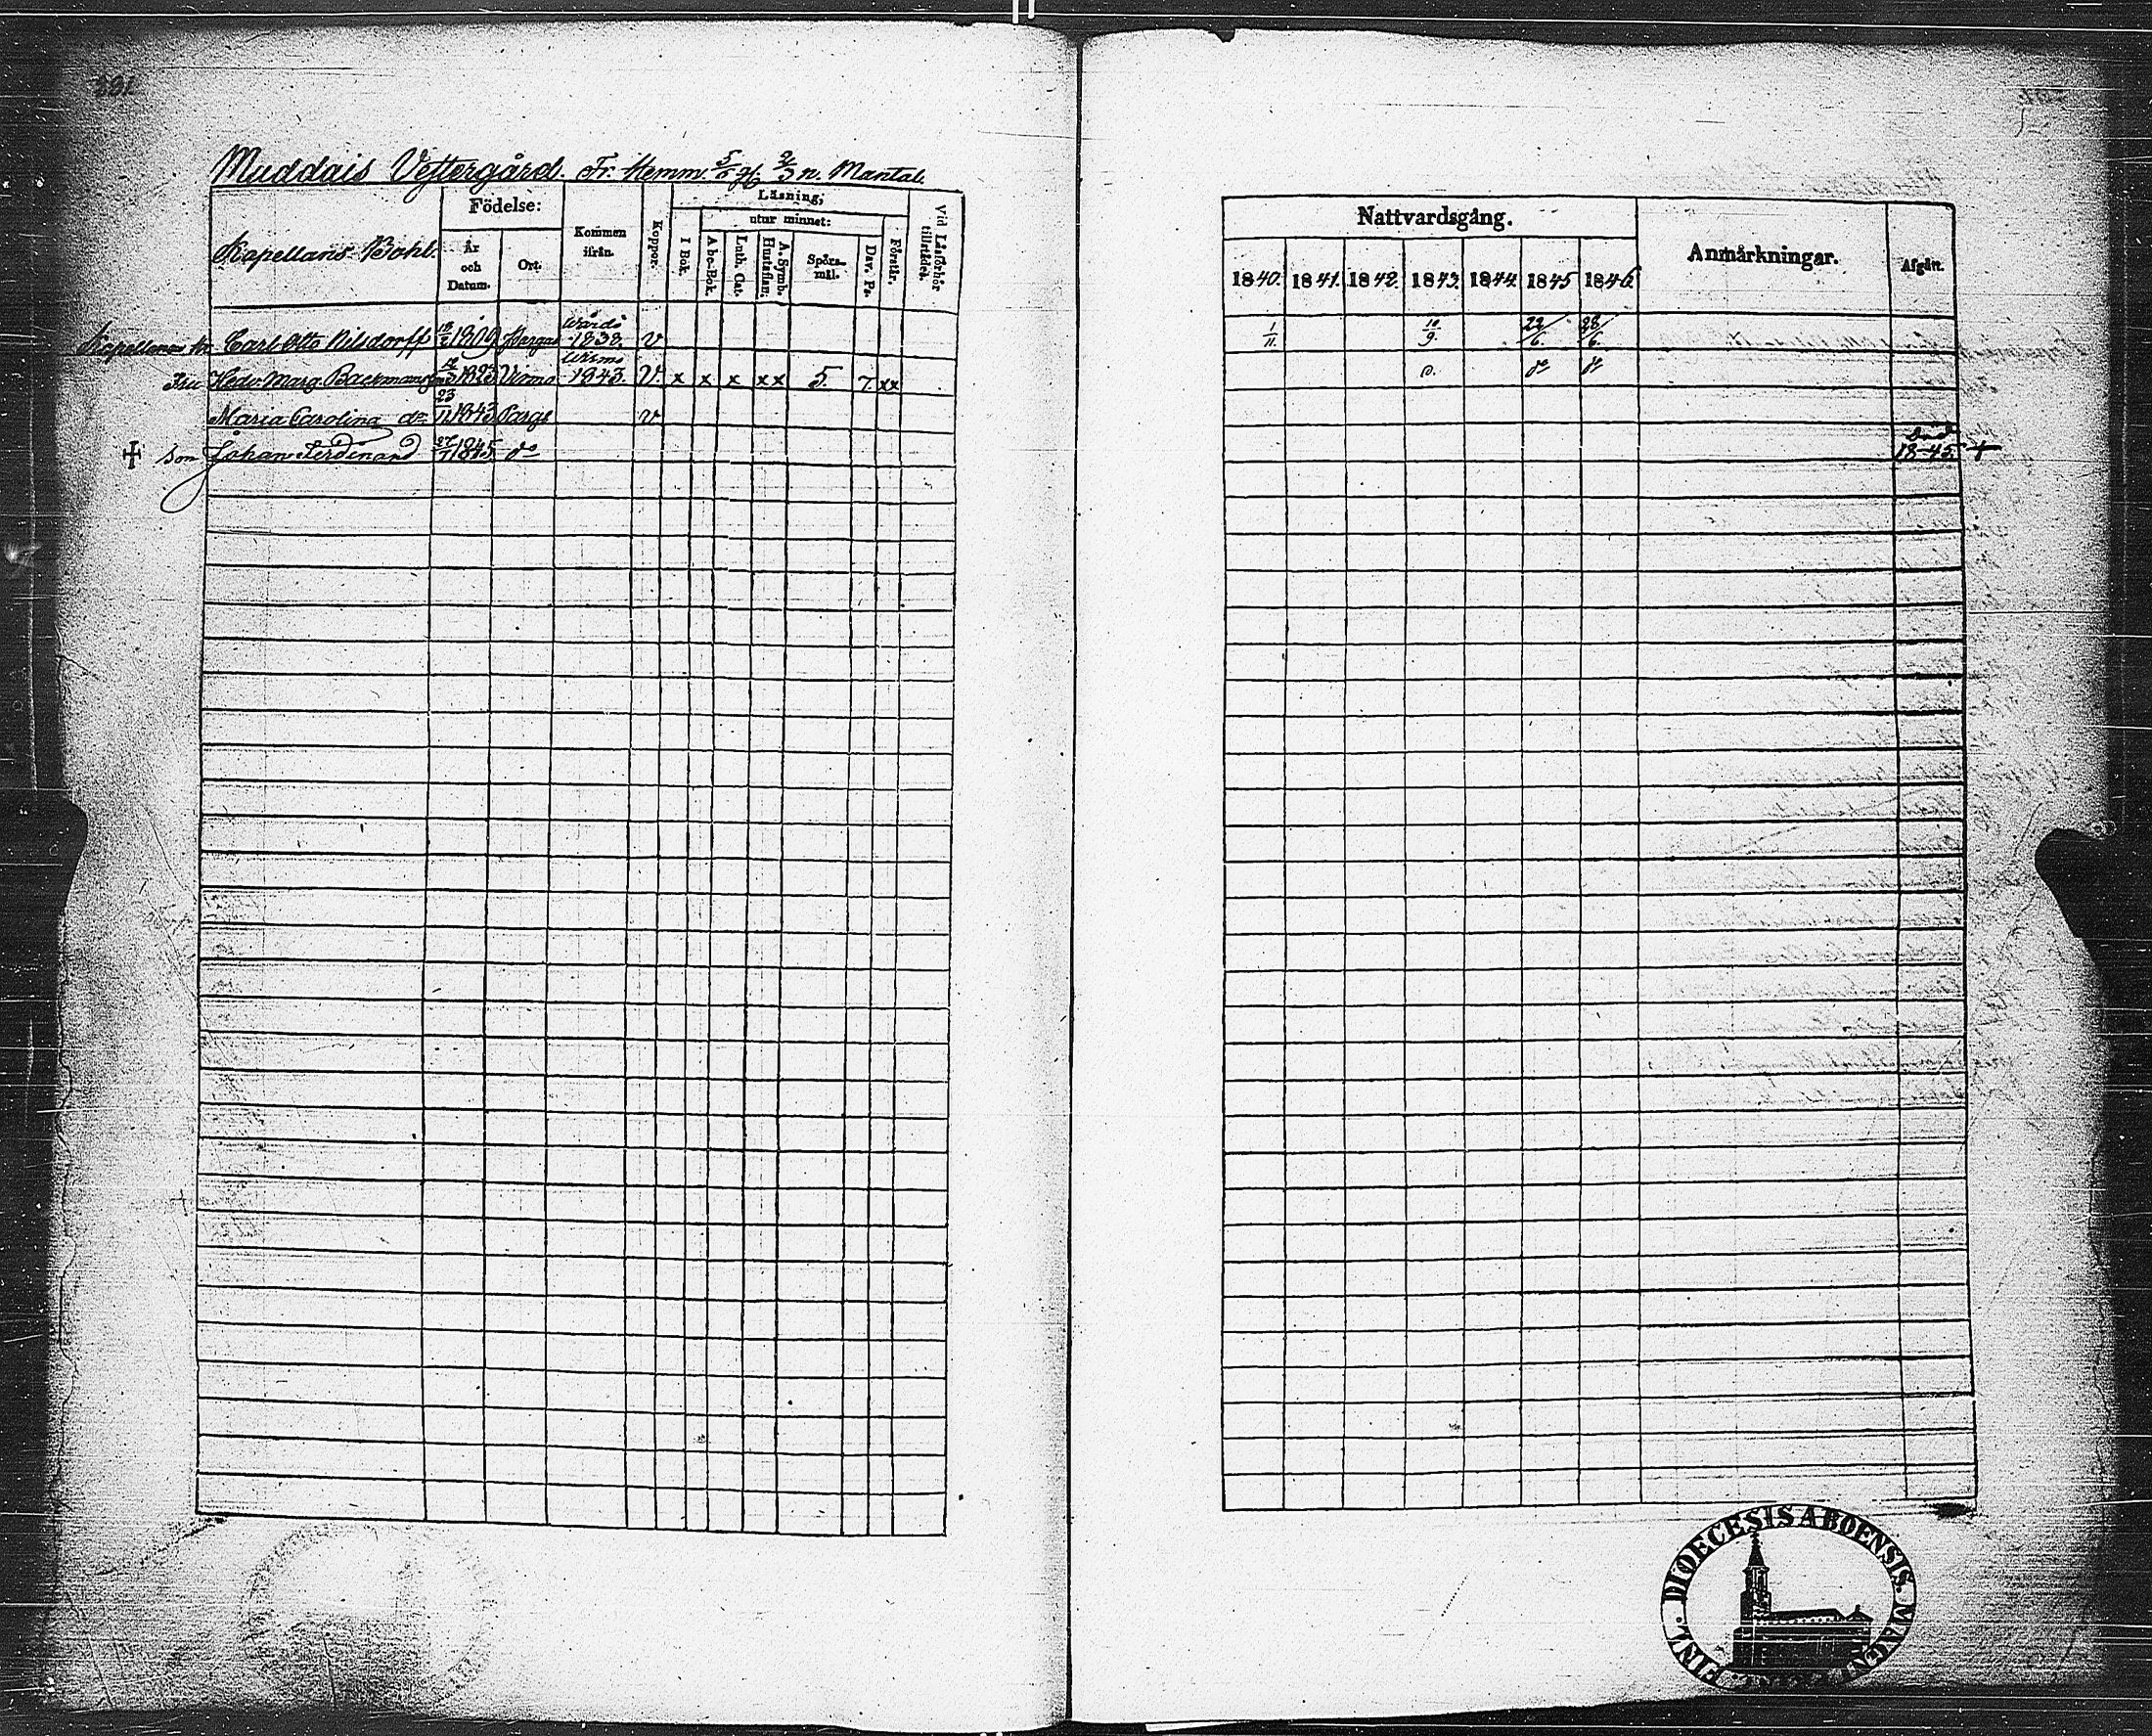 Muddais Vestergård. Fr. Hemm. 5/6 2/3 n. Mantal.
Kapellans-Bohl.
Födelse:
År och Datum.
Ort.
Kommen ifrån.
Koppor.
Läsning,
utur minnet:
I Bok.
Abc-Bok.
Luth. Cat.
A. Symb. Hustaflan.
Spörs-mål.
Dav. Ps.
Förstår.
Vid Läsförhör tillstädes.
Kapellanen Hr Carl Otto Nilsdorff 1809 Pargas Wårdö 1838. v
Fru Hedv. Marg. Backmansson 1823 Virmo Wirmo 1843. v x x x xx 5. 7 xx
Maria Carolina do 23/11 1843 Pargs v
+ Son Johan Ferdinand 27/7 1845. do
Nattvardsgång.
1840. 1841. 1842. 1843. 1844. 1845 1846
Anmärkningar.
Afgått.
1/11. 10/9. 22/6. 28/6.
D. do do
Död 1845. +
FINL. DIOECESIS ABOENSIS. MAGNI